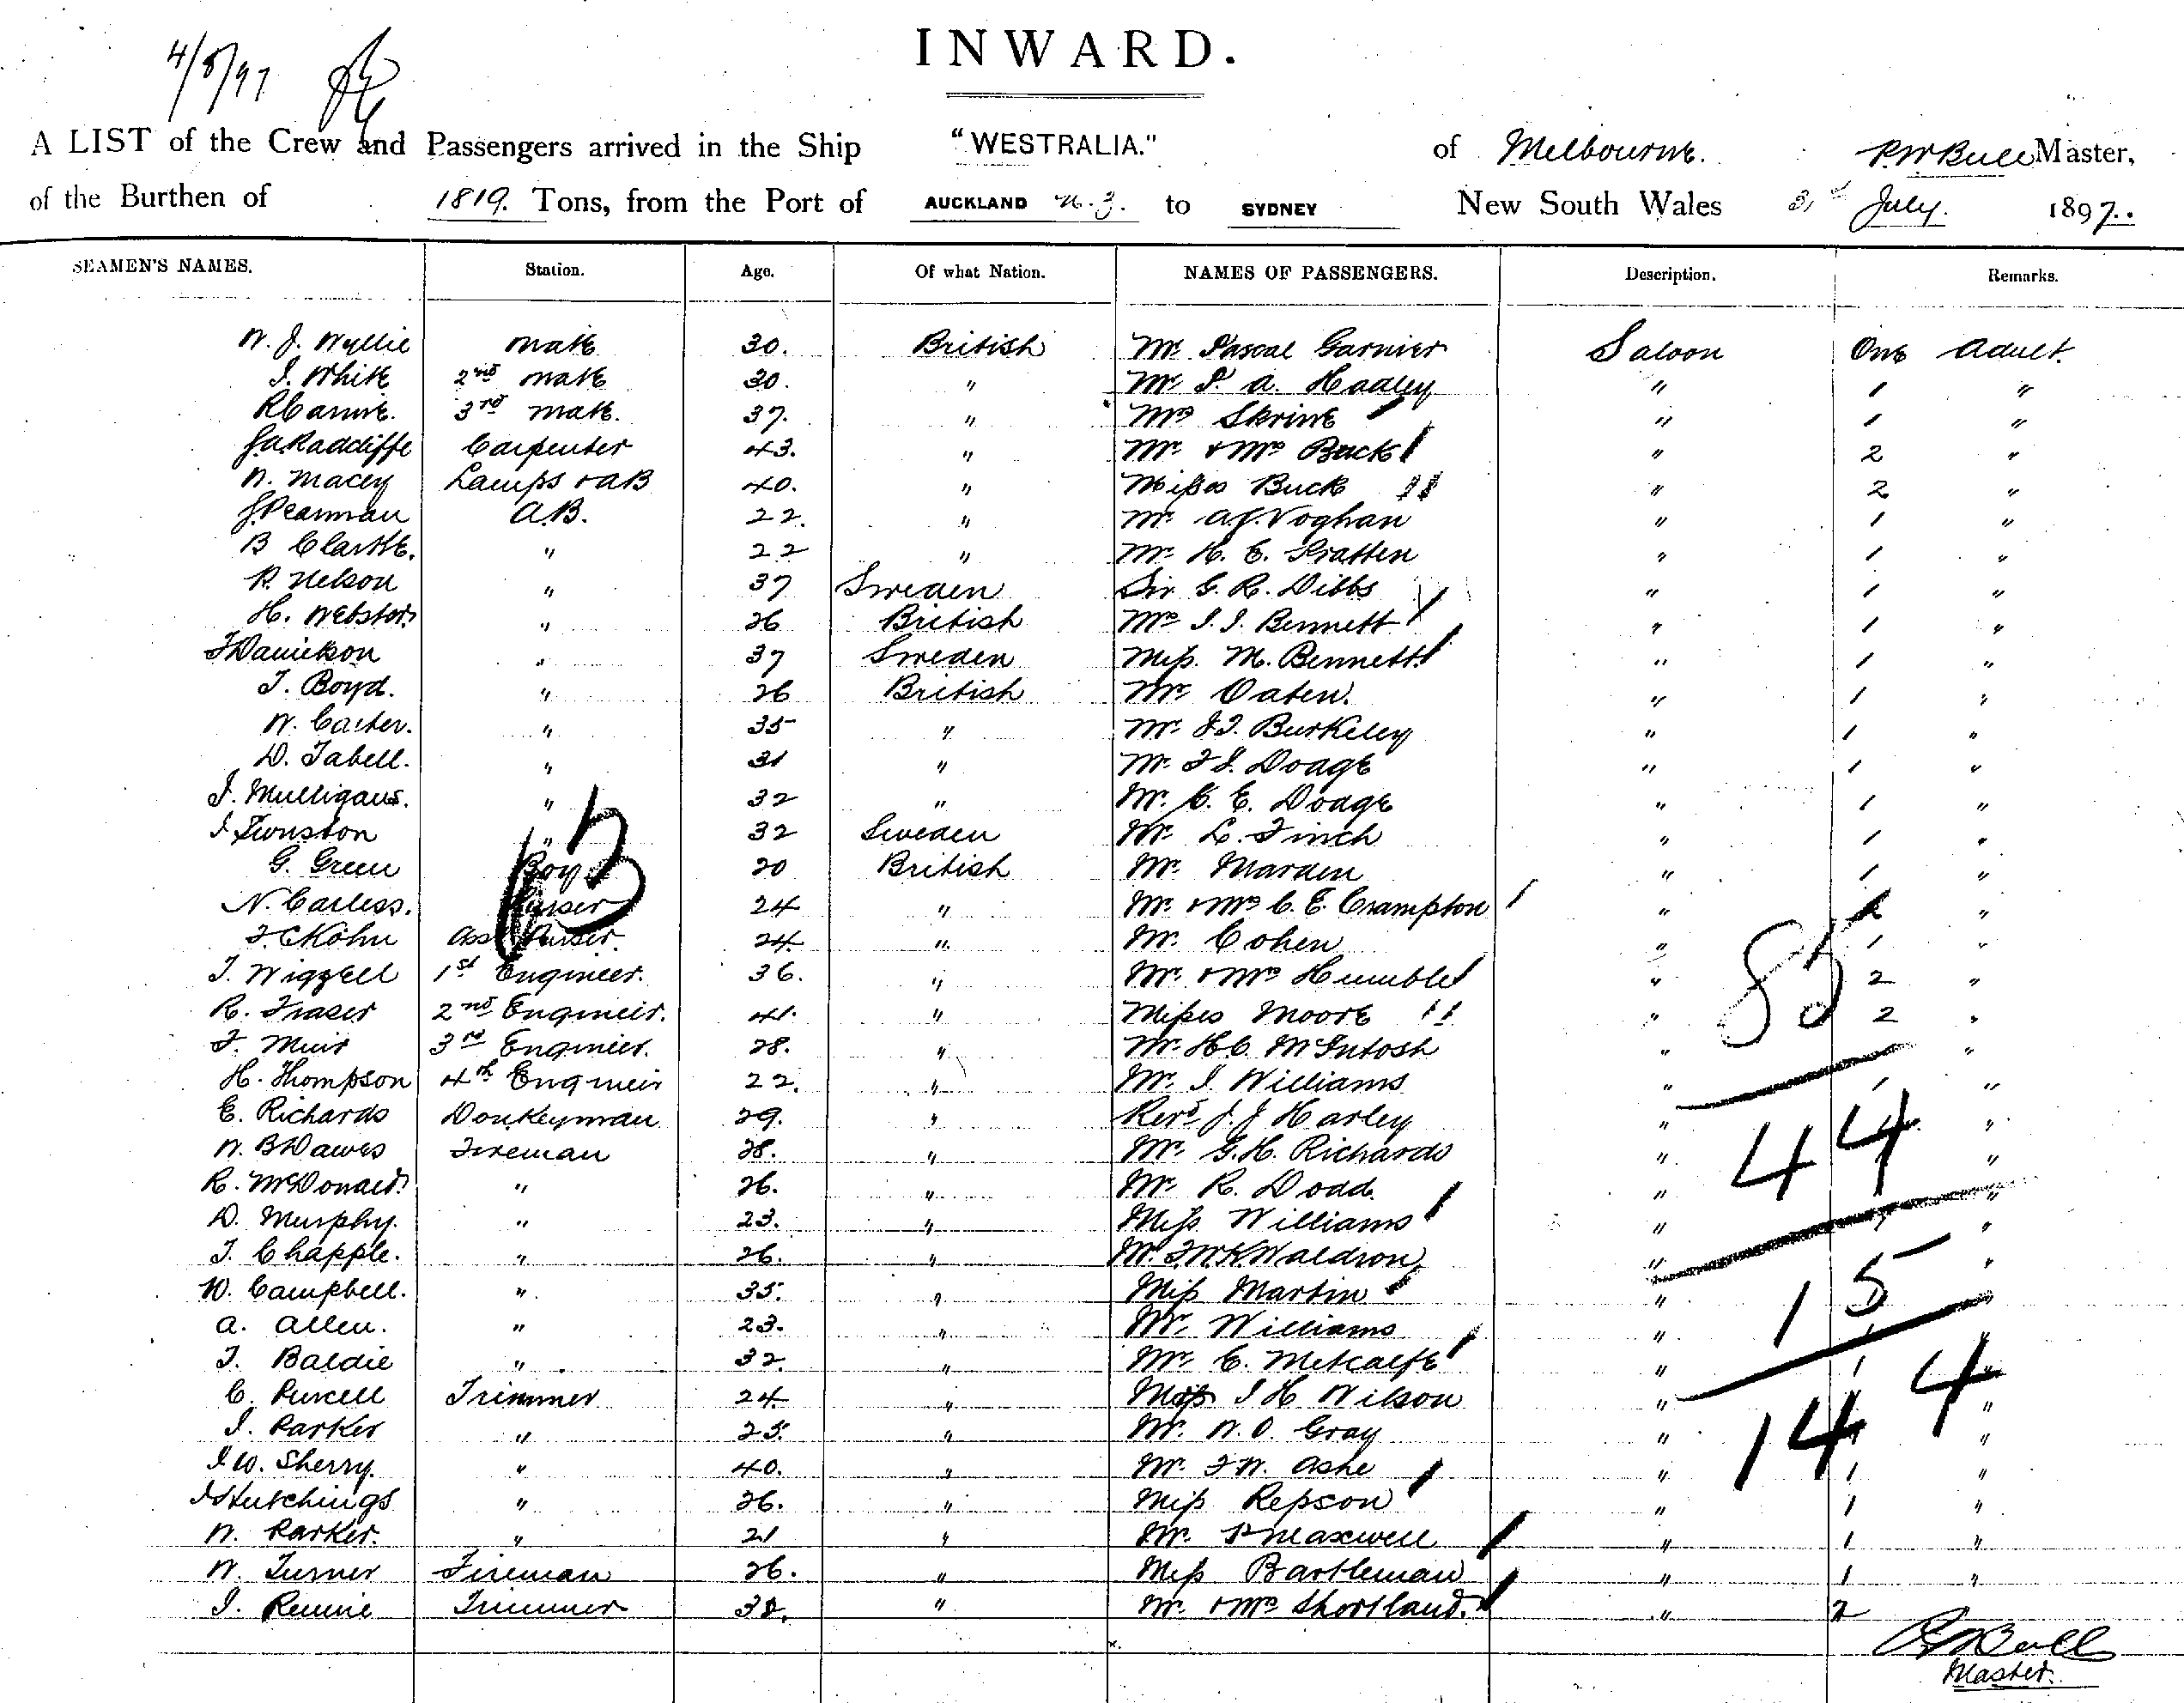 INWARD.
4/8/97
A LIST of the Crew and Passengers arrived in the Ship "WESTRALIA." of Melbourne. Master,
of the Burthen of 1819. Tons, from the Port of AUCKLAND N.Z. to SYDNEY New South Wales 31st July. 1897.
SEAMEN'S NAMES. Station. Age. Of what Nation. NAMES OF PASSENGERS. Description. Remarks.
W. J. Wyllie Mate 30. British Mr. Pascal Garnier Saloon One Adult.
J. White 2nd Mate 30. " Mr P. A. Hadley " 1 "
3rd Mate. 37. " Mrs Skrine " 1 "
J.A. Radcliffe Carpenter 43. " Mr. & Mrs Buck " 2 "
W. Macey Lamps & AB 40. " Misses Buck " 2 "
J. Pearman A.B. 22. " Mr. A.J. Voghan " 1 "
B Clarke. " 22 " Mr. H. E. Pratten " 1 "
P. Nelson " 37 Sweden Sir G. R. Dibbs " 1 "
H. Webster " 26 British Mrs J. J. Bennett " 1 "
Danielson " 37 Sweden Miss. M. Bennett " 1 "
T. Boyd. " 26 British Mr Oaten. " 1 "
W. Carter. " 35 " Mr. Burkeley " 1 "
D. Tabell. " 31 " Mr. Doage " 1 "
J. Mulligans. " 32 " Mr. C. E. Doage " 1 "
" 32 Sweden Mr. L. Finch " 1 "
G. Green Boy 20 British Mr. Marden " 1 "
N. Carless. Purser 24 " Mr. & Mrs C. E. Crampton " "
Kohn Asst Purser. 24 " Mr. Cohen " 1 "
T. Wiggell 1st Engineer. 36. " Mr. & Mrs Humble " 2 "
R. Fraser 2nd Engineer. 41. " Misses Moore " 2 "
F. Muir 3rd Engineer. 28. " Mr. H.C. McIntosh " "
H. Thompson 4th Engineer 22. " Mr. J. Williams " 1 "
E. Richards Donkeyman 29. " Revd J. J Harley " "
W. B Dawes Fireman 28. " Mr. G. H. Richards " "
R. McDonald " 26. " Mr R. Dodd. " "
D. Murphy. " 23. " Miss Williams " 1 "
T. Chapple. " 26. " Mr. Waldron " "
W. Campbell. " 35. " Miss Martin " "
A. Allen. " 23. " Mr. Williams " 1
T. Baldie " 32. " Mr. C. Metcalfe " 1 "
C. Purcell Trimmer 24 " J H Wilson " "
J. Parker " 25. " Mr. W. O. Gray " 1 "
J W. Sherry. " 40. " Mr. F W. Ashe " 1 "
J Hutchings " 26. " Miss Repson " 1 "
W. Parker. " 21 " Mr. P Maxwell " 1 "
W. Turner Fireman 26. " Miss Bartleman " 1 "
J. Rennie Trimmer 32. " Mr. & Mrs Shortland. " 2
13
85
44
15
4
14
Master.